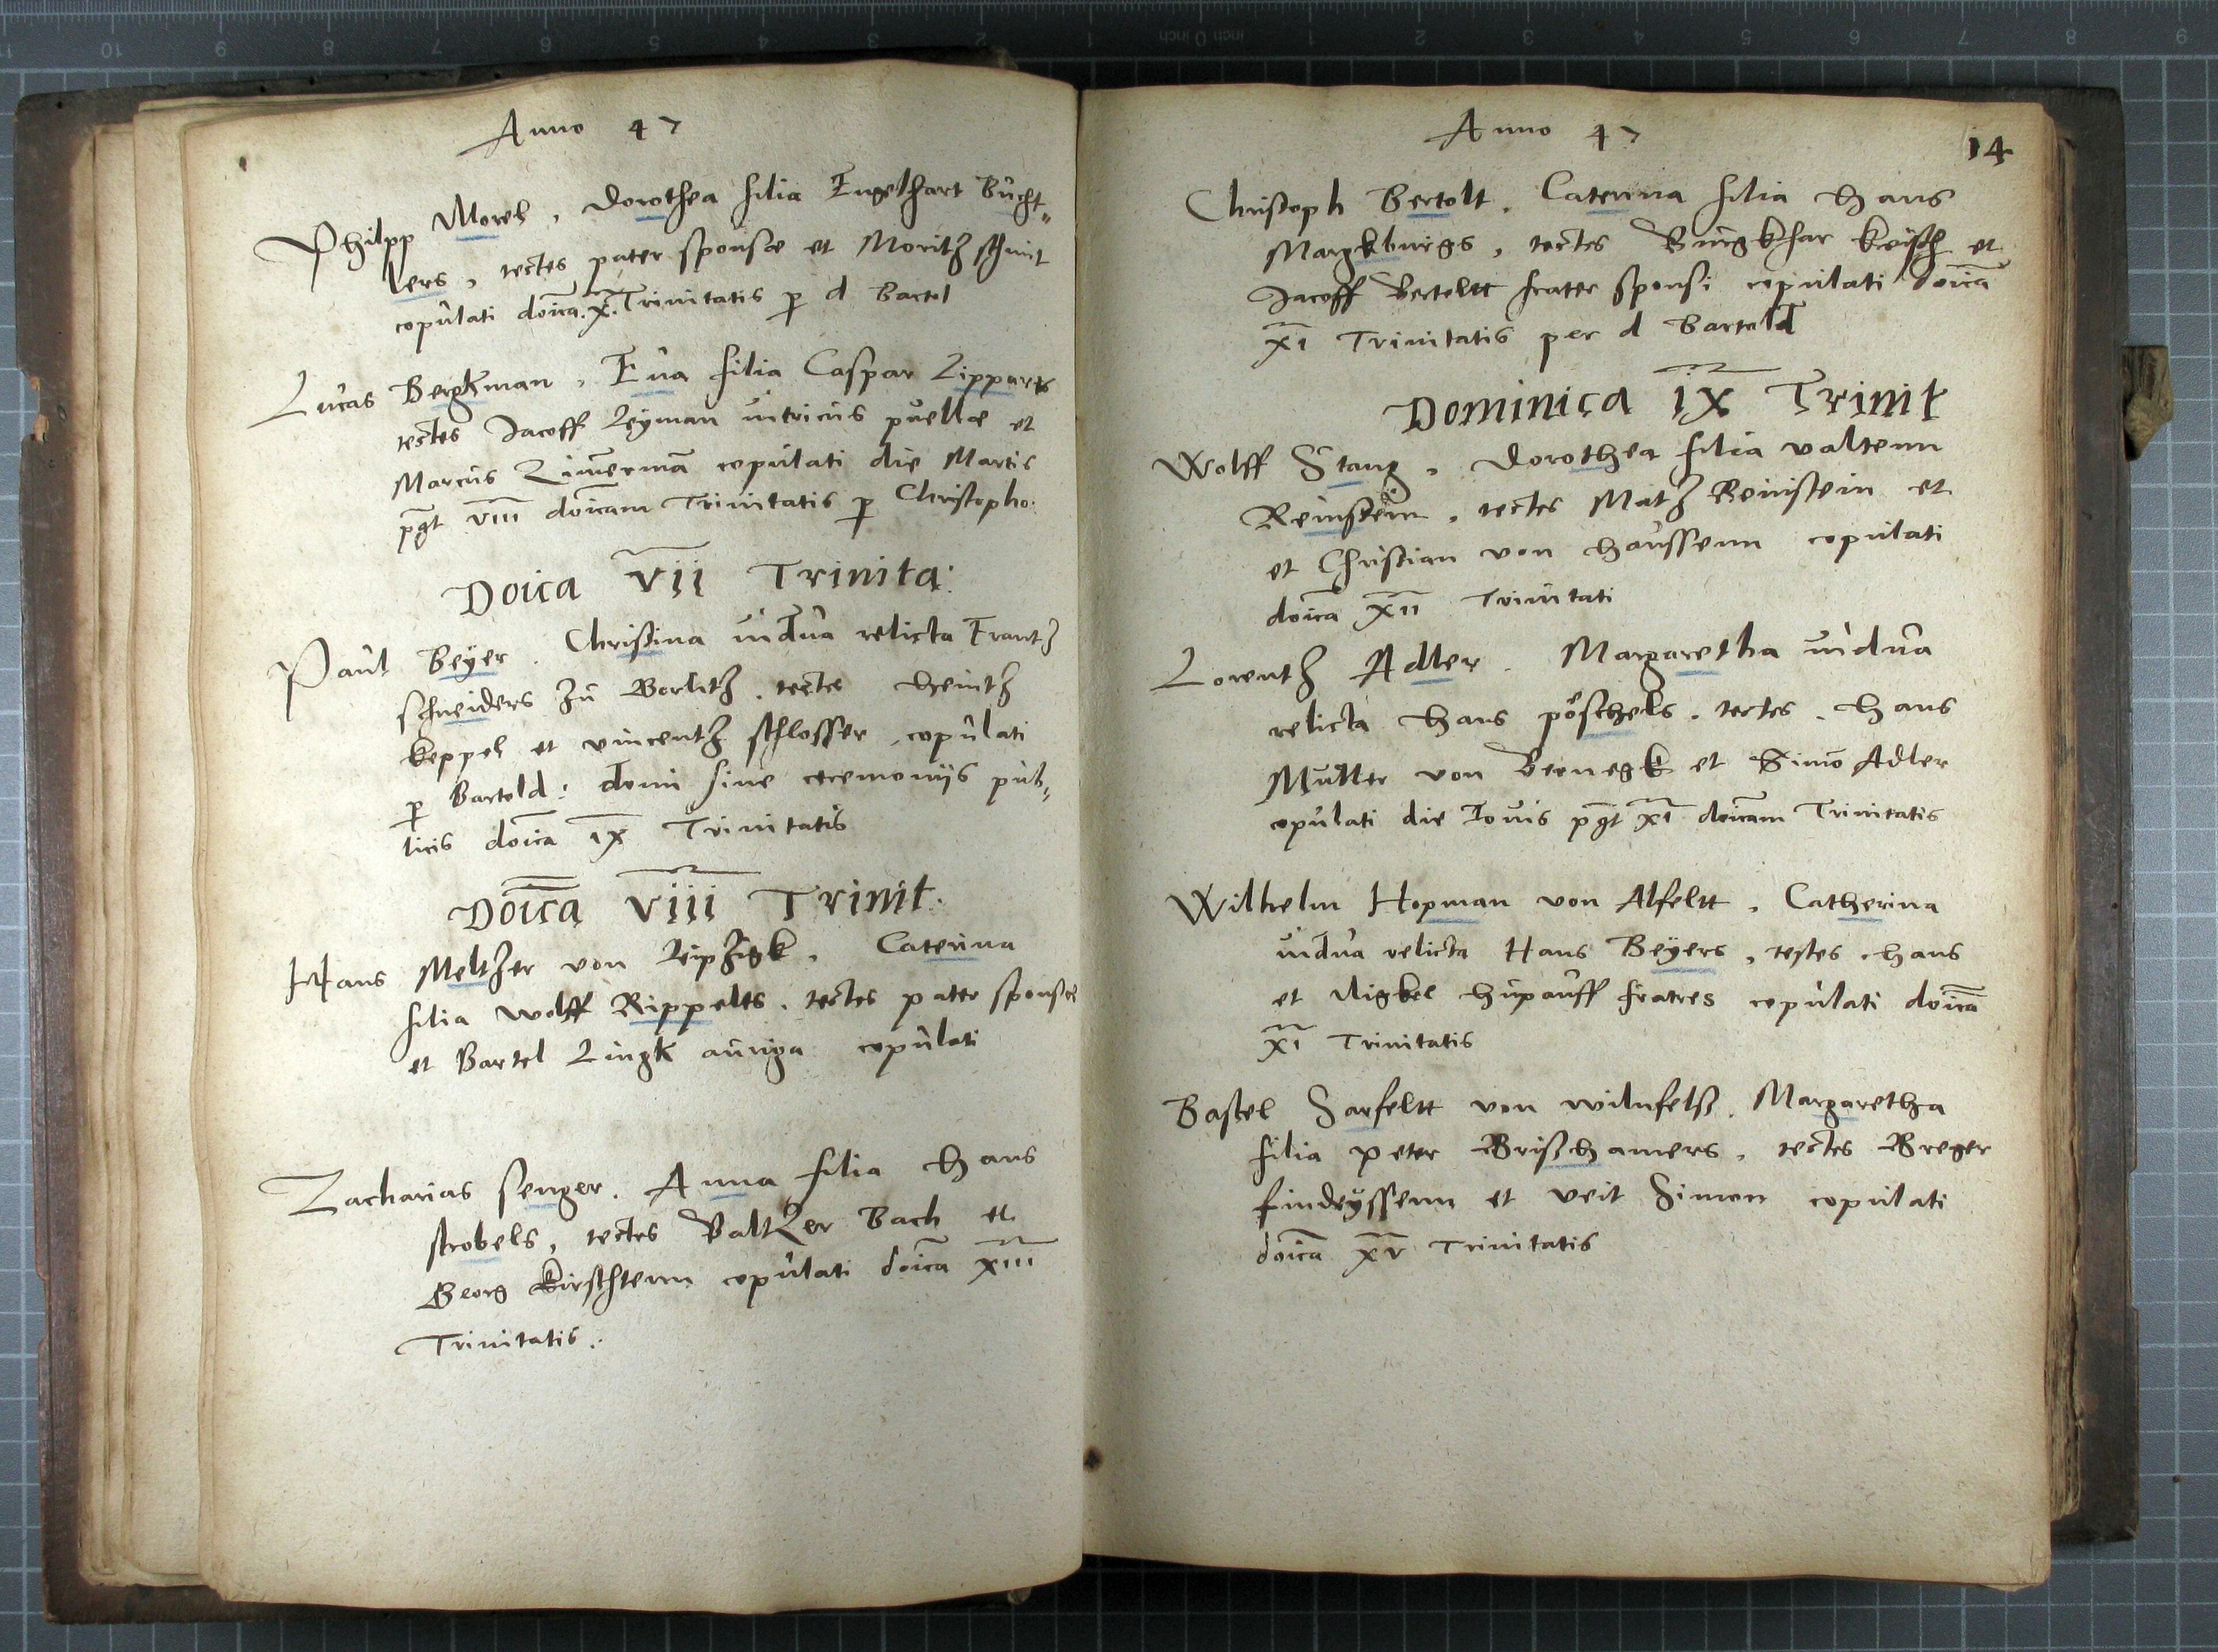 Anno 47
Philpp Morel, Dorothea filia Engelhart Bücht„
lers, testes pater sponsæ et Moritz schmit
copulati doica. X. Trinitatis p d Bartel
Lucas Bergkman, Eua filia Caspar Zipparts
testes Jacoff Leyman uitricus puellæ et
Marcus Zimerma copulati die Martis
pgt VIII doicam Trinitatis p Christopho.
Doica VII Trinita:
Paul Beÿer. Christina uidua relicta Frantz
schneiders zu Gorlitz. testes Heintz
keppel et vincentz schlosser, copulati
p Bartold: domi sine ceremoniis pub„
licis doica IX Trinitatis
Doica VIII Trinit.
Hans Meltzer von Leipzigk, Caterina
filia Wolff Rippelts. testes pater sponsæ
et Bartel Lingk auriga copulati
Zacharias senger. Anna filia Hans
strobels, testes Baltzer Bach et
Georg Kirschstenn copulati doica XIII
Trinitatis.
Anno 47
14
Christoph Bertolt. Caterina filia Hans
Margkburgs, testes Burgkhar et
Jacoff Bertoltt frater sponsi copulati doica
XI Trinitatis per d Bartold
Dominica IX Trinit
Wolff Stang, Dorothea filia valtenn
Reinstein, testes Matz Reinstein et
et Christian von Haussenn copulati
doica XII Trinitati
Lorentz Adler. Margaretha uidua
relicta Hans pöschels. testes. Hans
Muller von Bernegk et Simo Adler
copulati die Iouis pgt XI doicam Trinitatis
Wilhelm Hopman von Alfeltt, Catherina
uidua relicta Hans Beÿers, testes. Hans
et Nigkel Hupauff fratres copulati doica
XI Trinitatis
Bastel Sarfeltt von wilnfels. Margaretha
filia peter Grischamers, testes Greger
findeÿssenn et veit Simon copulati
doica XV Trinitatis